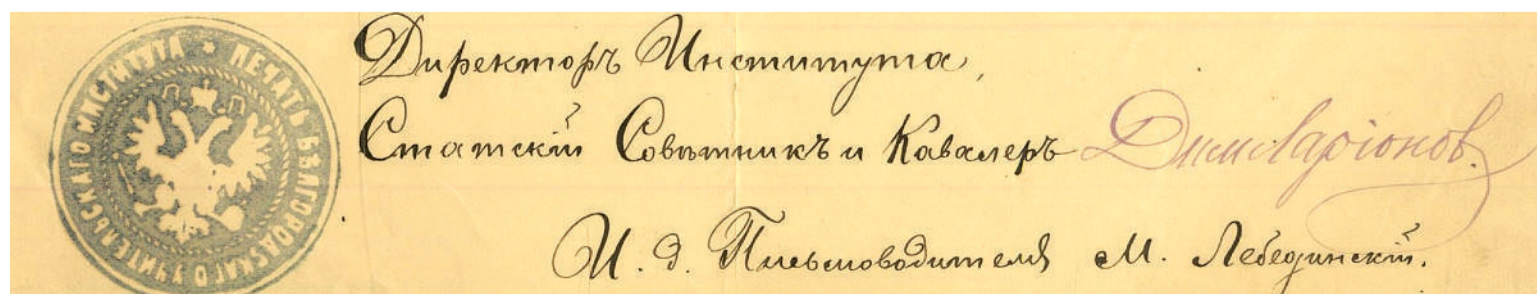 ПЕЧАТЬ БѢЛГОРОДСКАГО УЧИТЕЛЬСКАГО ИНСТИТУТА *
Директоръ Института,
Статскій Совѣтникъ и Кавалеръ Дим Ларіонов.
И. д. Письмоводителя М. Лебединскій.